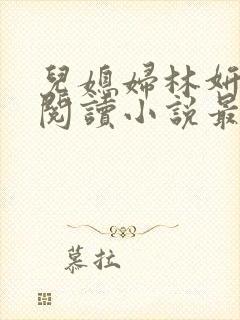 兒媳婦林妍
閱讀小說最
慕拉